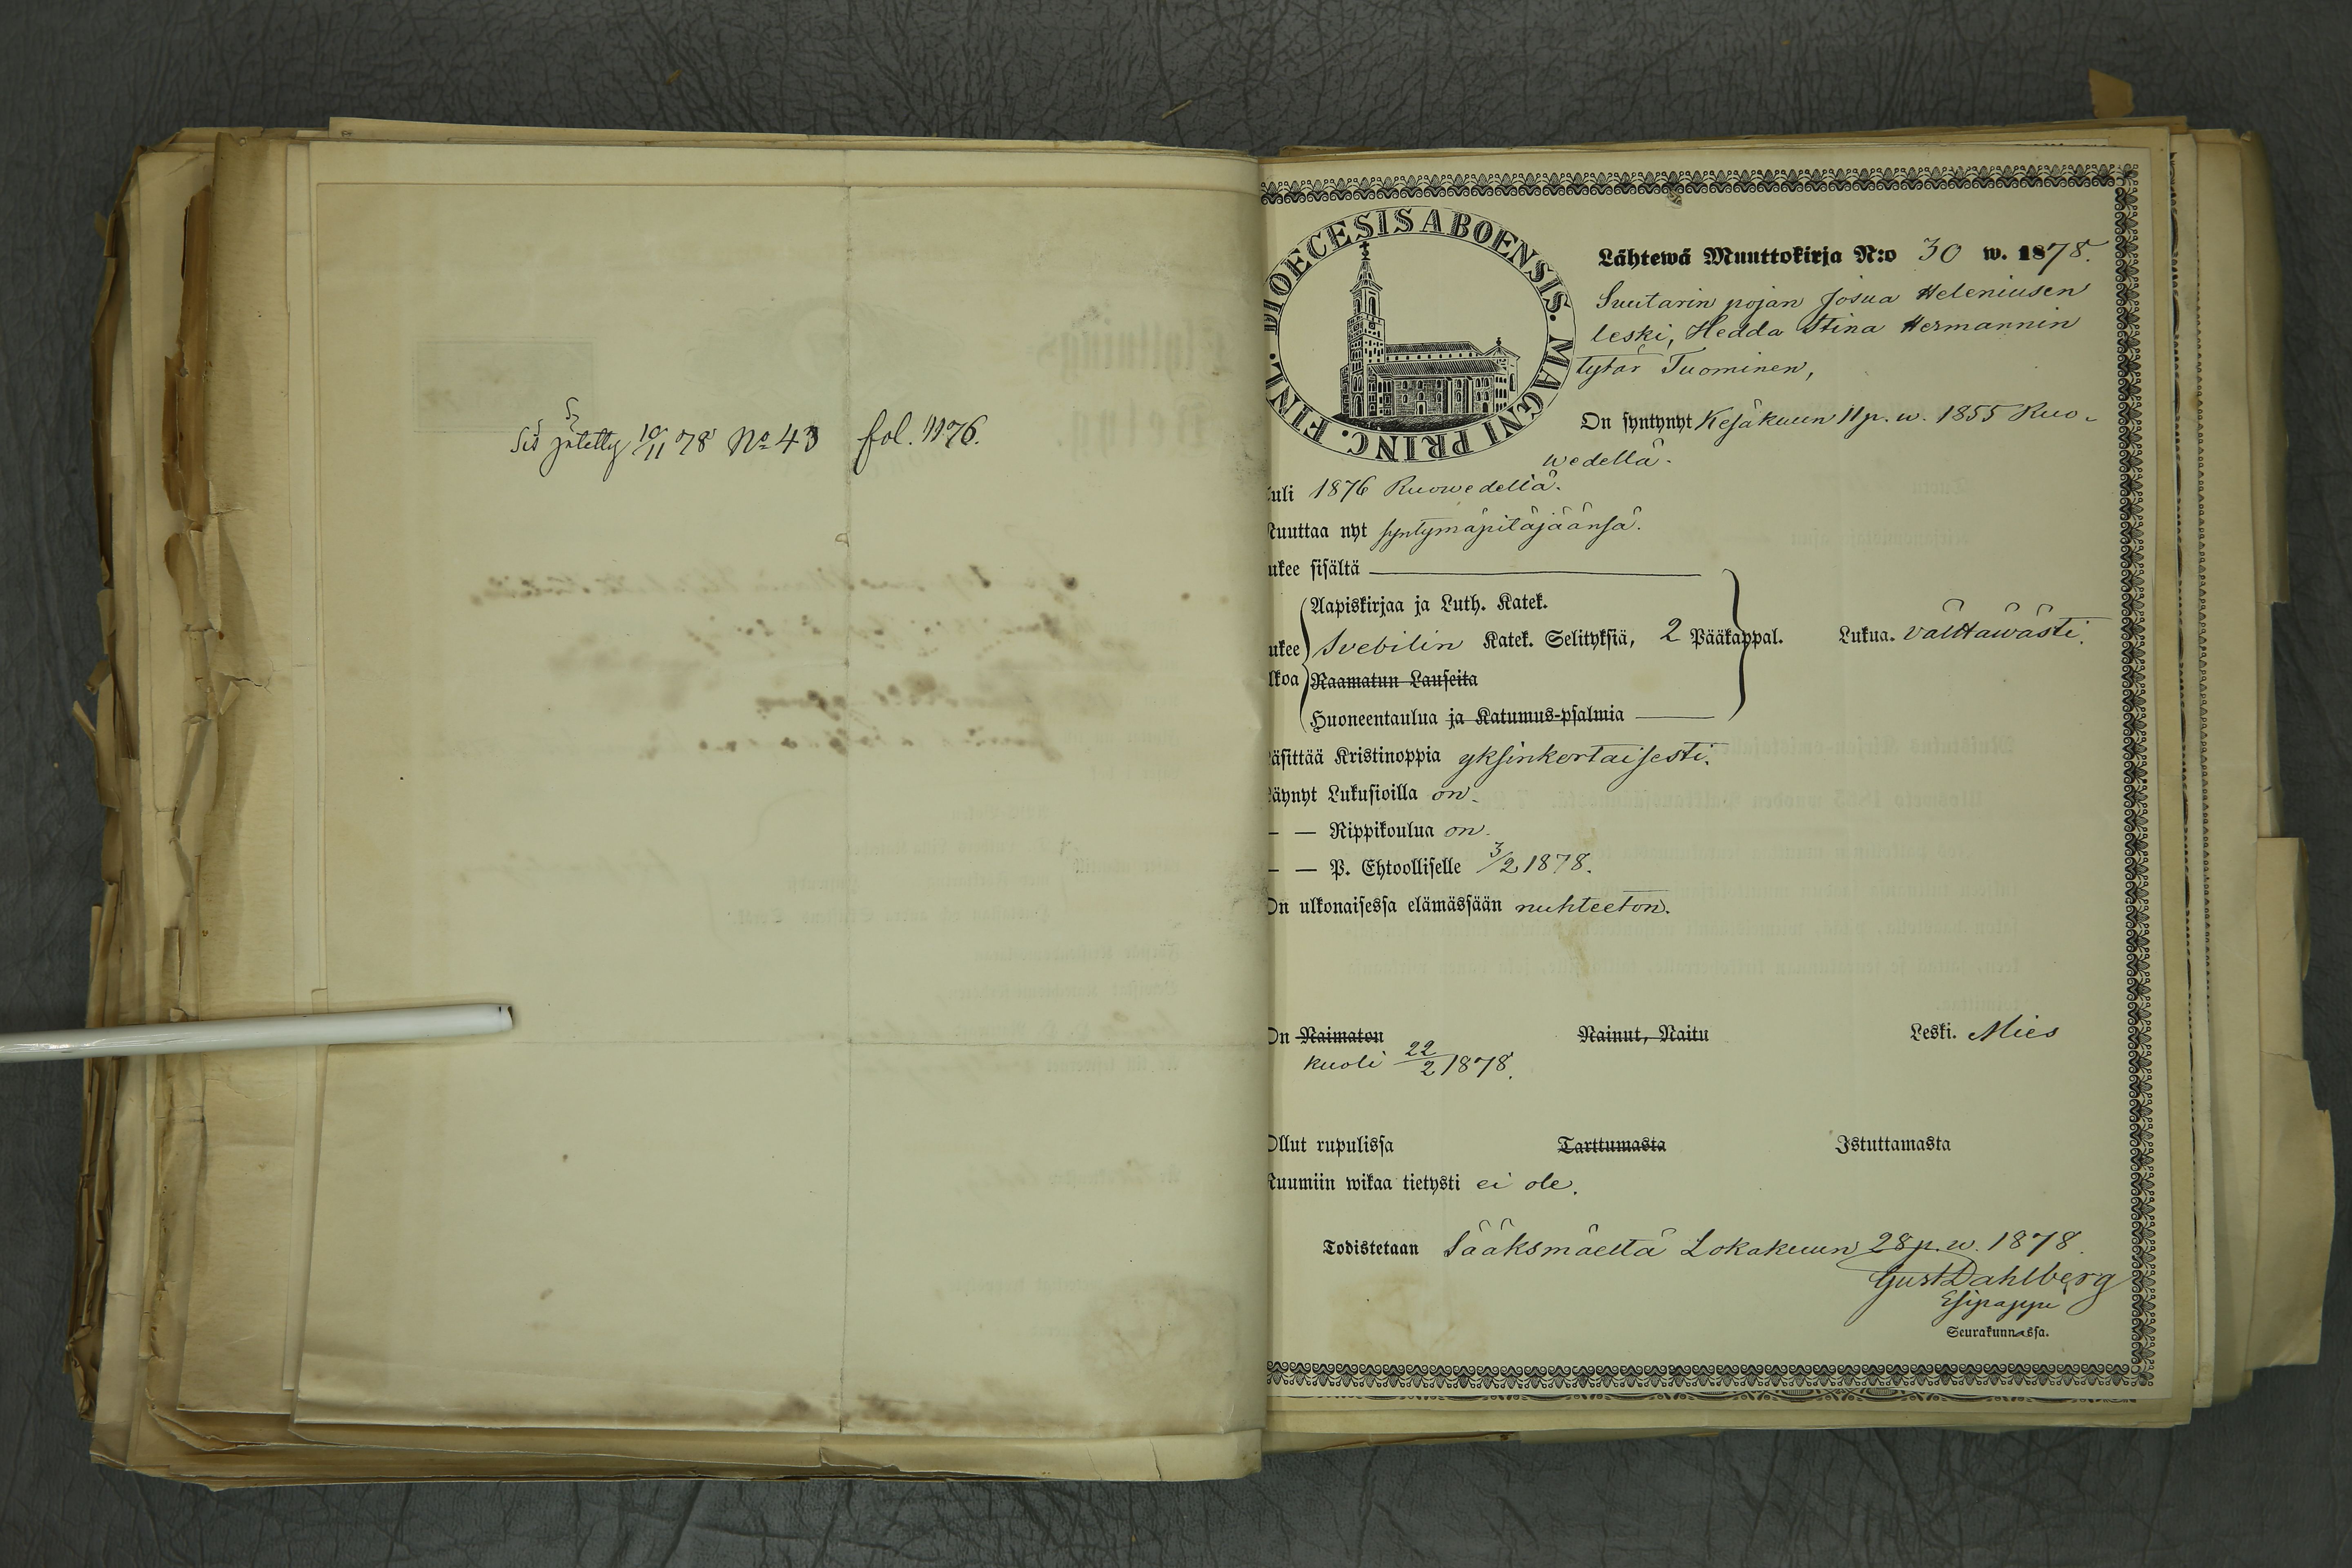 Sis jätetty 10/11 78 No 43 fol. 1176.
DIOECESIS ABOENSIS. MAGNI PRINC. FINL.
Lähtewä Muuttokirja N:o 30 w. 1878.
Suutarin pojan Josua Heleniusen
leski, Hedda Stina Hermannin
tytär Tuominen,
On syntynyt Kesäkuun 11 p. w. 1855 Ruo-
wedellä.
uli 1876 Ruowedeltä.
uuttaa nyt syntymäpitäjäänsä.
ukee sisältä
Aapiskirjaa ja Luth. Katek.
ukee Svebilin Katek. Selityksiä, 2 Pääkappal. Lukua. välttäwästi.
lkoa Raamatun Lauseita
Huoneentaulua ja Katumus-psalmia
äsittää Kristinoppia yksinkertaisesti.
äynyt Lukusioilla on.
— — Rippikoulua on.
— — P. Ehtoolliselle 3/2 1878.
On ulkonaisessa elämässään nuhteeton.
On Naimaton Nainut, Naitu Leski. Mies
kuoli 22/2 1878.
Ollut rupulissa Tarttumasta Istuttamasta
Ruumiin wikaa tietysti ei ole.
Todistetaan Sääksmäeltä Lokakuun 28 p. w. 1878.
Gust Dahlberg
Esipappi
Seurakunnassa.